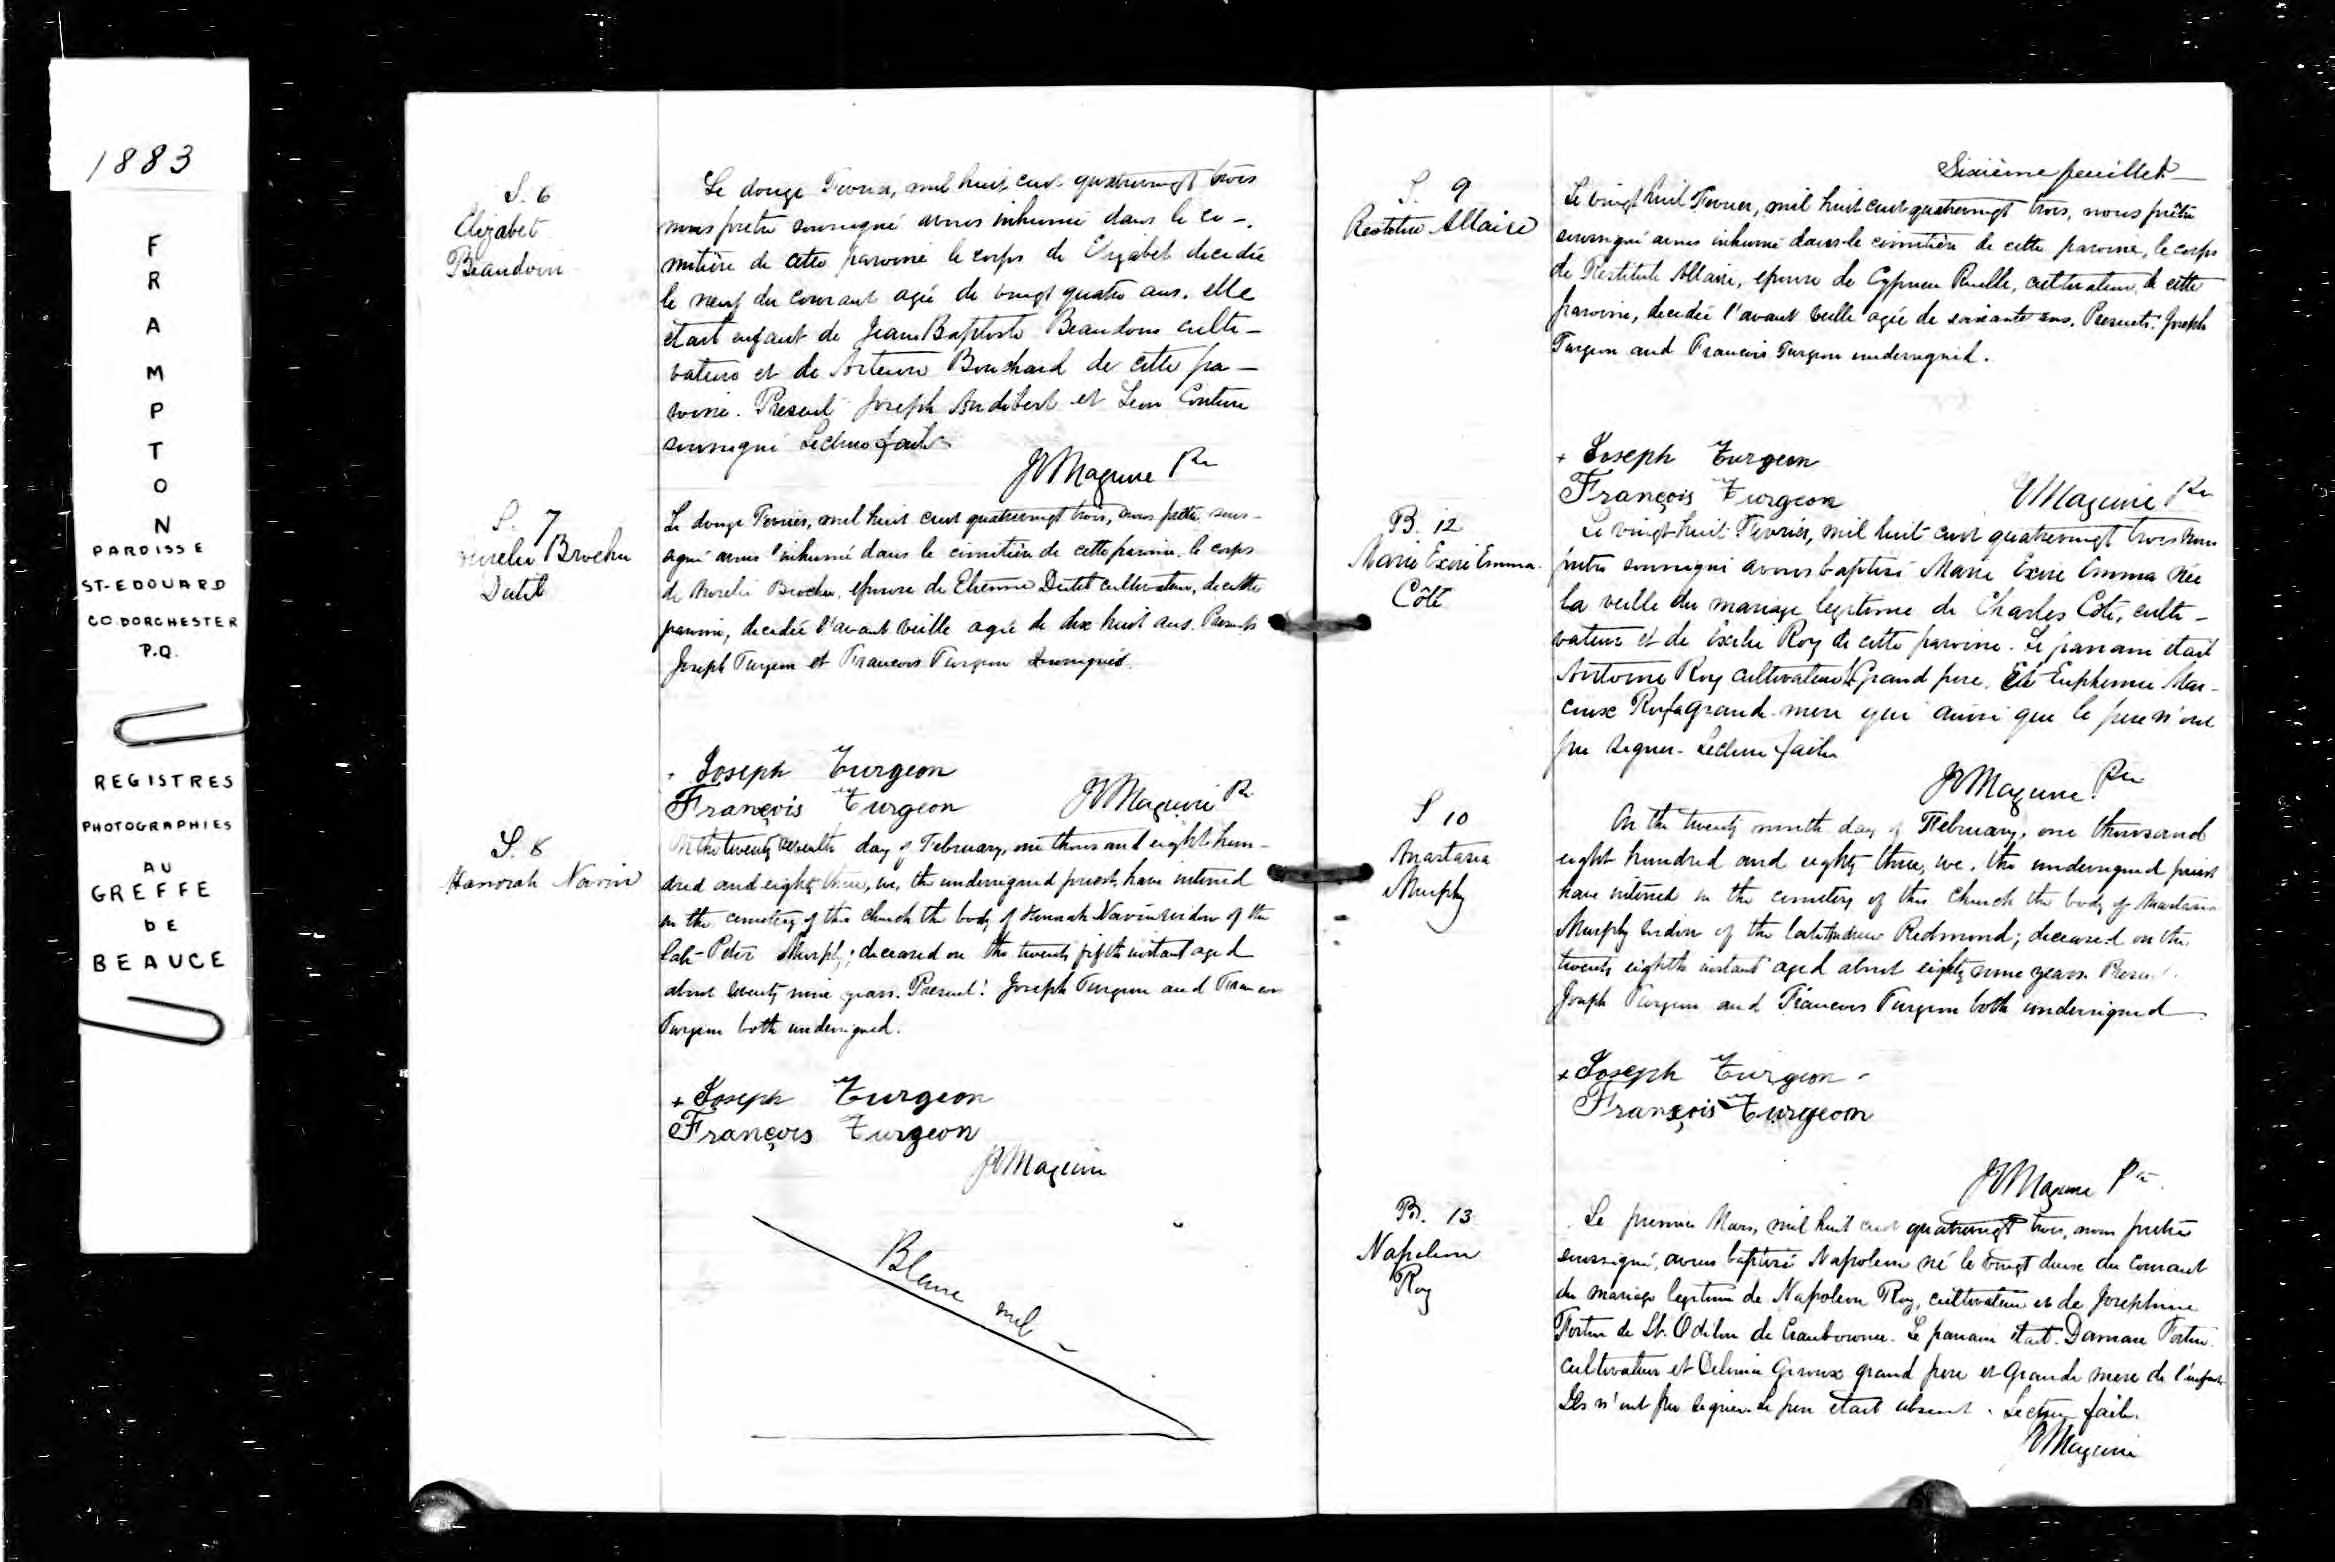 1883
F
R
A
M
P
T
O
N
PAROISSE
ST-EDOUARD
CO. DORCHESTER
P.Q.
REGISTRES
PHOTOGRAPHIES
AU
GREFFE
DE
BEAUCE
S. 6
Elizabet
Beaudoin
Le douze Fevrier, mil huit cent quatrevingt trois
nous pretre soussigné avons inhumé dans le ci-
mitière de cette paroisse le corps de Elizabet decedée
le neuf du courant agée de vingt quatre ans. elle
etait enfant de Jean Baptiste Beaudoin culti-
vateur et de Bouchard de cette pa-
roisse. Present Joseph Audibert et Leon Couture
soussigné Lecture faite
JMaguire Ptr
S. 7
Aurelie Brochu
Dutil
Le douze Fevrier, mil huit cent quatrevingt trois, nous pretre sous-
signé avons inhumé dans le cimitière de cette paroisse le corps
de Aurelie Brochu, epouse de Etienne Dutil cultivateur, de cette
paroisse, decedée l'avant veille agée de dix huit ans. Presents
Joseph Turgeon et Francois Turgeon soussignés.
+ Joseph Turgeon
François Turgeon JMaguire Ptr
S. 8
Hanorah Navin
On the twenty seventh day of February, one thousand eight hun-
dred and eighty three, we, the undersigned priest, have interred
in the cemetery of this church the body of Hannah Navin widow of the
late Peter Murphy; deceased on the twenty fifth instant aged
about seventy nine years. Present: Joseph Turgeon and Francois
Turgeon both undersigned.
+ Joseph Turgeon
François Turgeon
JMaguire
Blanc nul
Sixième feuillet
S. 9
Restitue Allaire
Le vingt huit Fevrier, mil huit cent quatrevingt trois, nous prêtre
soussigné avons inhumé dans le cimitière de cette paroisse, le corps
de Restitute Allaire, epouse de Cyprien Ruelle, cultivateur, de cette
paroisse, decedée l'avant veille agée de soixante ans. Presents: Joseph
Turgeon and Francois Turgeon undersigned.
+ Joseph Turgeon
François Turgeon JMaguire Ptr
B. 12
Marie Exire Emma
Côté
Le vingt-huit Fevrier, mil huit cent quatrevingt trois nous
pretre soussigné avons baptisé Marie Exire Emma née
la veille du mariage legitime de Charles Coté, culti-
vateur et de Exelie Roy de cette paroisse. Le parrain etait
Antoine Roy cultivateur Grand pere. Et Euphemie Mar-
coux Roy la grand-mere qui ainsi que le pere n'ont
pu signer. Lecture faite
JMaguire Ptr
S 10
Anastasia
Murphy
On the twenty ninth day of February, one thousand
eight hundred and eighty three, we, the undersigned priest
have interred in the cemetery of this Church the body of Anastasia
Murphy widow of the late Andrew Redmond; deceased on the
twenty eighth instant aged about eighty nine years. Present.
Joseph Turgeon and Francois Turgeon both undersigned
+ Joseph Turgeon
François Turgeon
JMaguire Ptr
B. 13
Napoleon
Roy
Le premier Mars, mil huit cent quatrevingt trois, nous pretre
soussigné, avons baptisé Napoleon né le vingt deux du courant
du mariage legitime de Napoleon Roy, cultivateur et de Josephine
Fortin de St. Odilon de Cranbourne. Le parrain etait Damase Fortin
cultivateur et Delimia Giroux grand pere et grande mere de l'enfant
Ils n'ont pu signer. Le pere etait absent. Lecture faite.
JMaguire